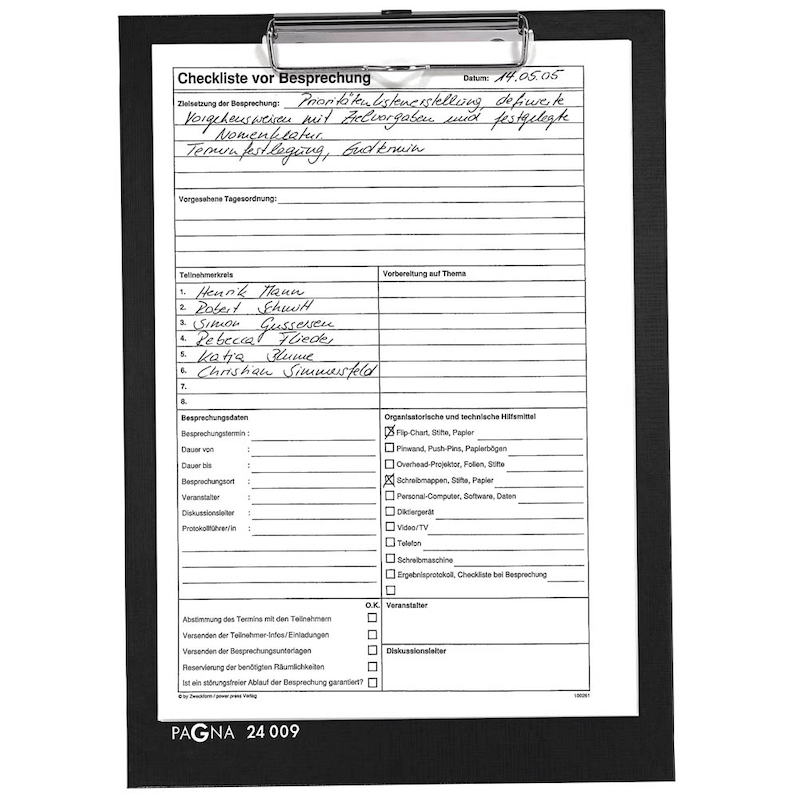 Checkliste vor Besprechung Datum: 14.05.05
Zielsetzung der Besprechung: Prioritätenlistenerstellung, definierte
Vorgehensweisen mit Zielvorgaben und festgelegte
Nomenklatur.
Terminfestlegung, Endtermin
Vorgesehene Tagesordnung:
Teilnehmerkreis
1. Henrik Mann
2. Robert Schmitt
3. Simon Gussersen
4. Rebecca Flieder
5. Katja Blume
6. Christian Simmersfeld
7.
8.
Vorbereitung auf Thema
Besprechungsdaten
Besprechungstermin :
Dauer von :
Dauer bis :
Besprechungsort :
Veranstalter :
Diskussionsleiter :
Protokollführer/in :
Organisatorische und technische Hilfsmittel
Flip-Chart, Stifte, Papier
Pinwand, Push-Pins, Papierbögen
Overhead-Projektor, Folien, Stifte
Schreibmappen, Stifte, Papier
Personal-Computer, Software, Daten
Diktiergerät
Video/TV
Telefon
Schreibmaschine
Ergebnisprotokoll, Checkliste bei Besprechung
O.K.
Abstimmung des Termins mit den Teilnehmern
Versenden der Teilnehmer-Infos/Einladungen
Versenden der Besprechungsunterlagen
Reservierung der benötigten Räumlichkeiten
Ist ein störungsfreier Ablauf der Besprechung garantiert?
Veranstalter
Diskussionsleiter
© by Zweckform / power press Verlag 100261
PAGNA 24 009